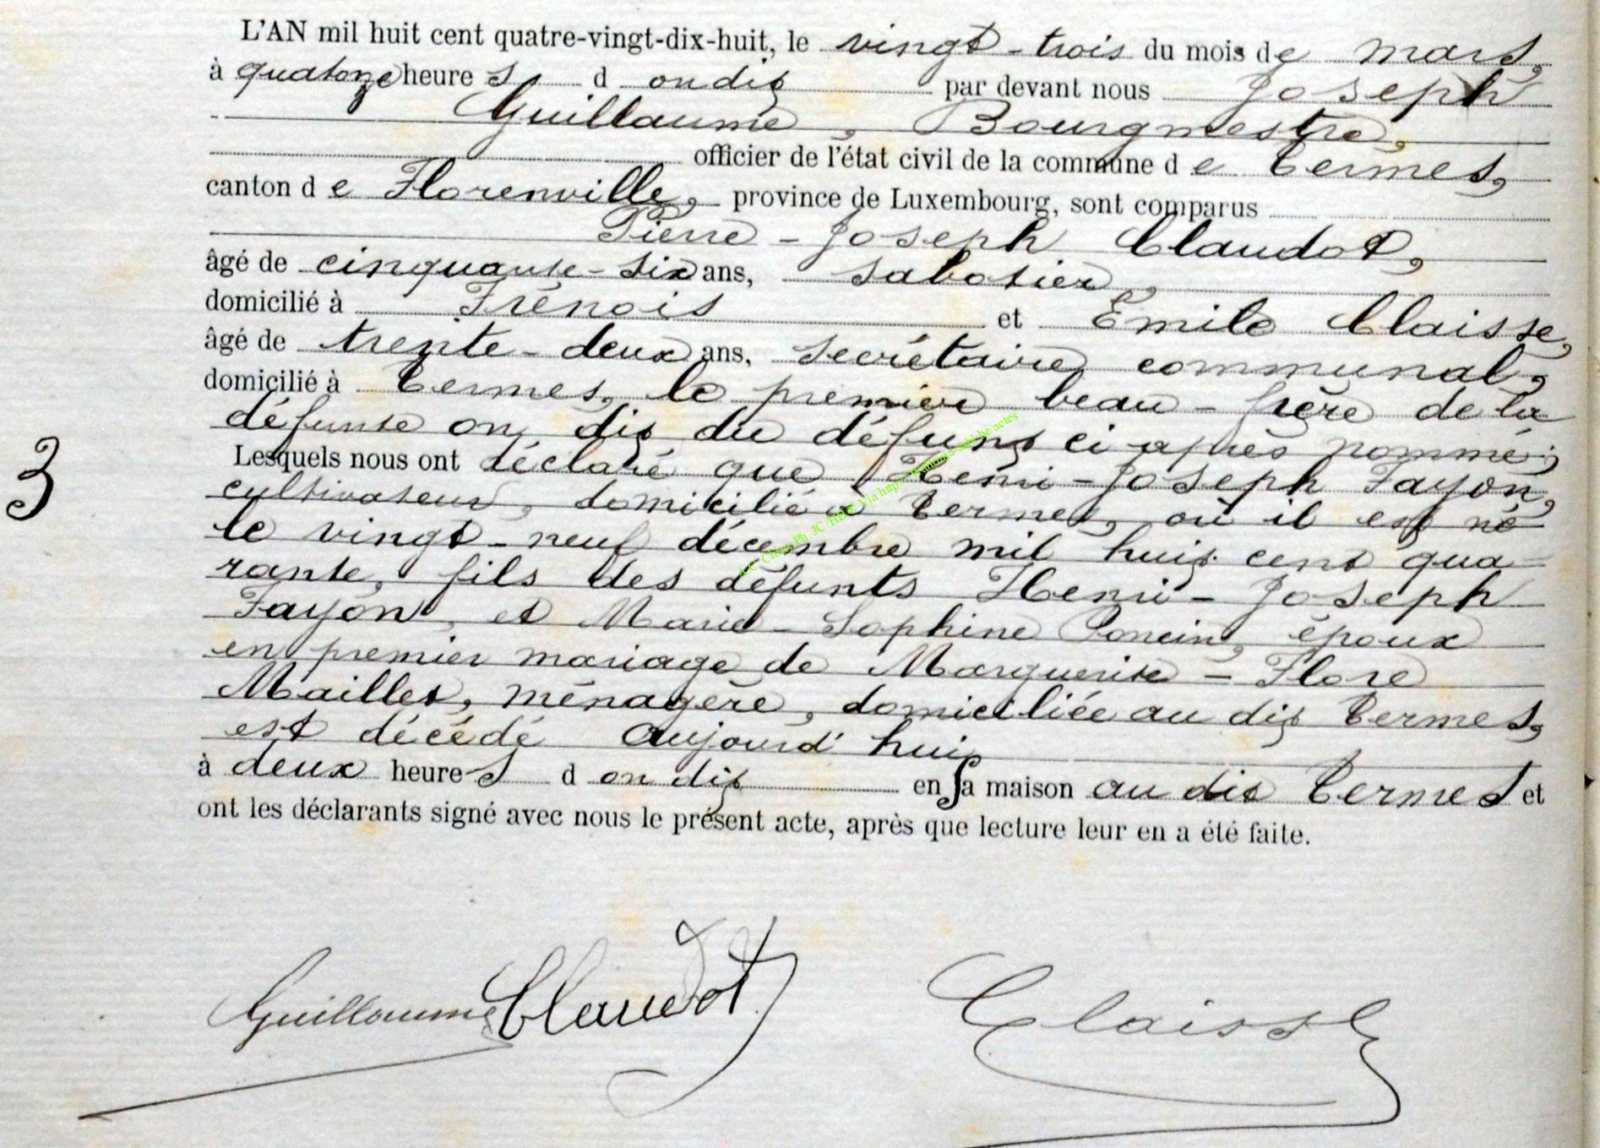 L'AN mil huit cent quatre-vingt-dix-huit, le vingt-trois du mois de mars,
à quatorze heures, d ondit par devant nous Joseph
Guillaume, Bourgmestre,
officier de l'état civil de la commune de Termes,
canton de Florenville, province de Luxembourg, sont comparus
Pierre-Joseph Claudot,
âgé de cinquante-six ans, sabotier,
domicilié à Frénois et Emile Claisse,
âgé de trente-deux ans, secrétaire communal,
domicilié à Termes, le premier beau-frère de la
défunte on dit du défunt ci après nommé;
Lesquels nous ont déclaré que Henri-Joseph Fayon,
cultivateur, domicilié à Termes, où il est né
le vingt-neuf décembre mil huit cent qua-
rante, fils des défunts Henri-Joseph
Fayon, et Marie-Sophine Poncin, époux
en premier mariage de Marguerite-Flore
Maillet, ménagère, domiciliée au dit Termes,
est décédé aujourd'hui
à deux heures d on dit en sa maison au dit Termes et
ont les déclarants signé avec nous le présent acte, après que lecture leur en a été faite.
3
Guillaume Claudot Claisse